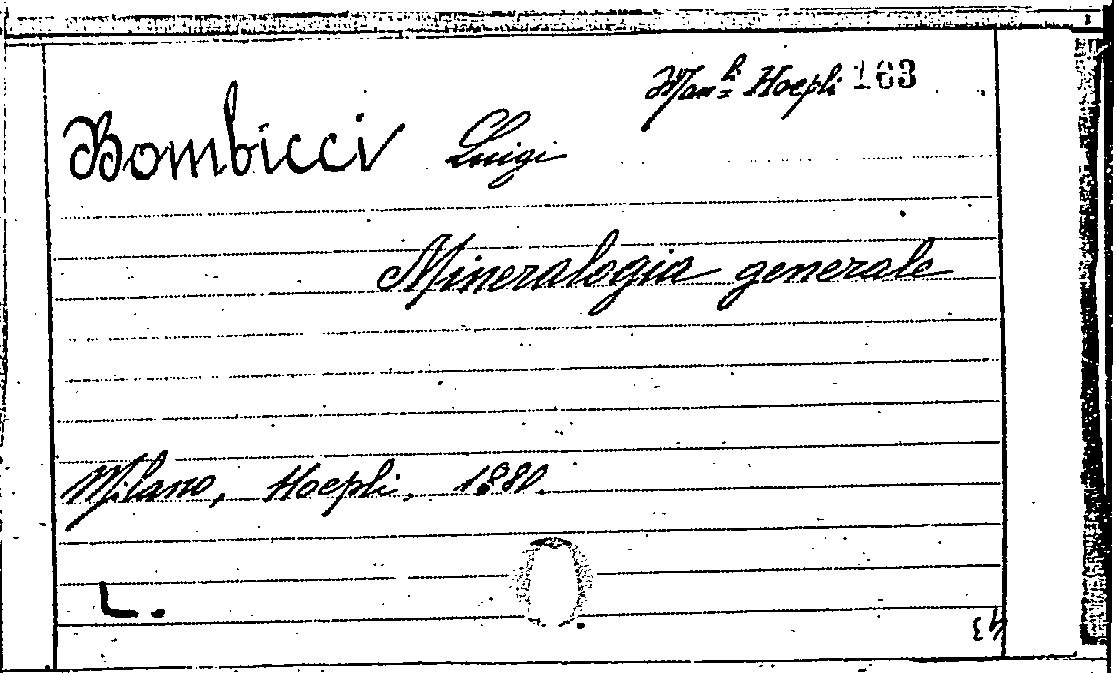 Man.li Hoepli 163
Bombicci Luigi
Mineralogia generale
Milano, Hoepli. 1880.
L.
43